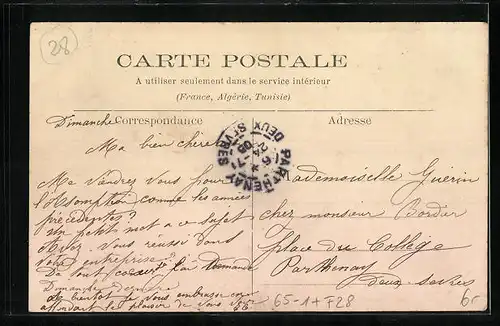 28
CARTE POSTALE
A utiliser seulement dans le service intérieur
(France, Algérie, Tunisie)
Dimanche
Correspondance
Adresse
Ma bien chère
PARTHENAY
DEUX-SEVRES
24 -7
08
Ma Viendrez Vous pour
l'Assomption comme les années
précédentes?
Un petit mot a ce sujet
Avez Vous réussi dans
Votre entreprise?
De tout
Dimanche
a bientôt je Vous embrasse
attendant le plaisir de Vous
Mademoiselle Guerin
chez monsieur Bordier
place du Collège
Parthenay
Deux-Sèvres
65-1+F28
6f